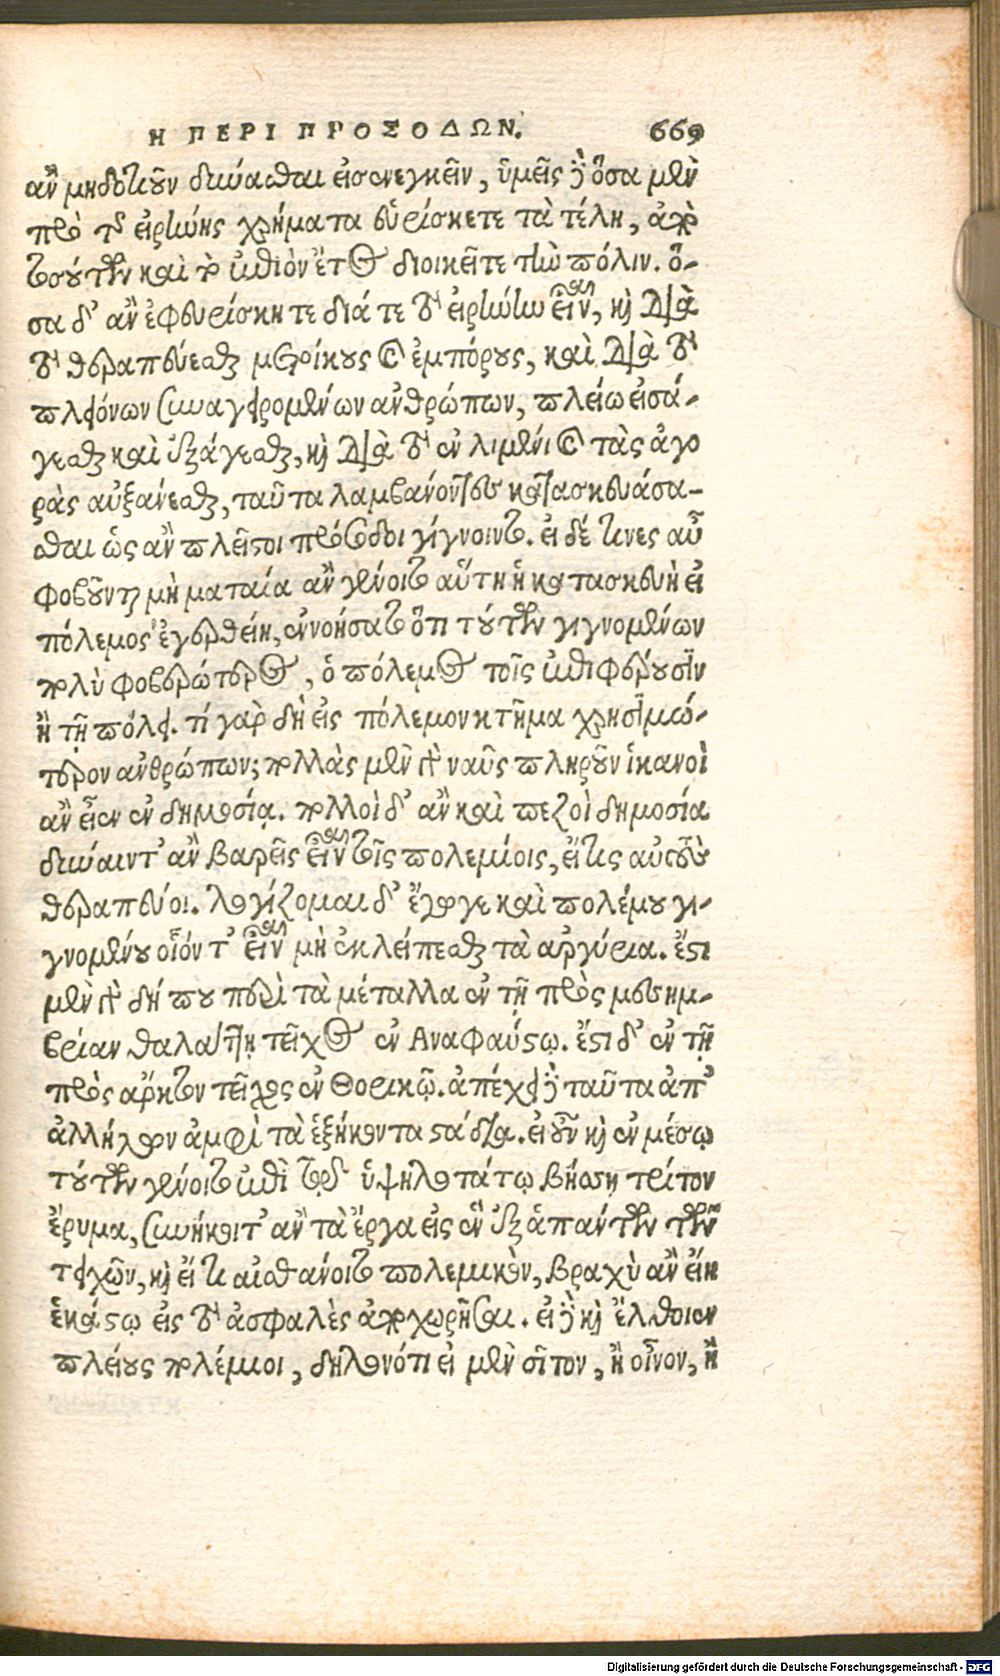 Η ΠΕΡΙ ΠΡΟΣΟΔΩΝ. 669
ἂν μηδοτιοῦν δύνασθαι εἰσενεγκεῖν, ὑμεῖς δὲ ὅσα μὲν
πρὸ τῆς εἰρήνης χρήματα εὑρίσκετε τὰ τέλη, ἀπὸ
τοσούτων καὶ τὸ ἐπιὸν ἔτος διοικεῖτε τὴν πόλιν. ὅ-
σα δ' ἂν ἐφευρίσκητε διά τε τὸ εἰρήνην εἶναι, καὶ διὰ
τὸ θεραπεύεσθαι μετοίκους καὶ ἐμπόρους, καὶ διὰ τὸ
πλειόνων συναγειρομένων ἀνθρώπων, πλείω εἰσά-
γεσθαι καὶ ἐξάγεσθαι, καὶ διὰ τὸ ἐν λιμένι καὶ τὰς ἀγο
ρὰς αὐξάνεσθαι, ταῦτα λαμβάνοντες κατασκευάσα-
σθαι ὡς ἂν πλεῖστοι πρόσοδοι γίγνοιντο. εἰ δέ τινες αὖ
φοβοῦνται μὴ ματαία ἂν γένοιτο αὕτη ἡ κατασκευὴ εἰ
πόλεμος ἐγερθείη, ἐννοήσατο ὅτι τούτων γιγνομένων
πολὺ φοβερώτερος, ὁ πόλεμος τοῖς ἐπιφέρουσιν
ἢ τῇ πόλει. τί γὰρ δὴ εἰς πόλεμον κτῆμα χρησιμώ-
τερον ἀνθρώπων; πολλὰς μὲν γὰρ ναῦς πληροῦν ἱκανοὶ
ἂν εἶεν ἐν δημοσίᾳ. πολλοὶ δ' ἂν καὶ πεζοὶ δημοσίᾳ
δύναιντ' ἂν βαρεῖς εἶναι τοῖς πολεμίοις, εἴτις αὐτοὺς
θεραπεύοι. λογίζομαι δ' ἔγωγε καὶ πολέμου γι-
γνομένου οἷόν τ' εἶναι μὴ ἐκλείπεσθαι τὰ ἀργύρια. ἔστι
μὲν γὰρ δή που περὶ τὰ μέταλλα ἐν τῇ πρὸς μεσημ-
βρίαν θαλάττῃ τεῖχος ἐν Αναφαύστῳ. ἔστι δ' ἐν τῇ
πρὸς ἄρκτον τεῖχος ἐν Θορικῷ. ἀπέχει δὲ ταῦτα ἀπ'
ἀλλήλων ἀμφὶ τὰ ἑξήκοντα στάδια. εἰ οὖν καὶ ἐν μέσῳ
τούτων γένοιτο ἐπὶ τῷδ ὑψηλοτάτῳ βήσσῃ τρίτον
ἔρυμα, συνήκοιτ' ἂν τὰ ἔργα εἰς ἓν ἐξ ἁπάντων τῶν
τειχῶν, καὶ εἴ τι αἰσθάνοιτο πολεμικὸν, βραχὺ ἂν εἴη
ἑκάστῳ εἰς τὸ ἀσφαλὲς ἀποχωρῆσαι. εἰ δὲ καὶ ἔλθοιεν
πλείους πολέμιοι, δηλονότι εἰ μὲν σῖτον, ἢ οἶνον, ἢ
Digitalisierung gefördert durch die Deutsche Forschungsgemeinschaft - DFG